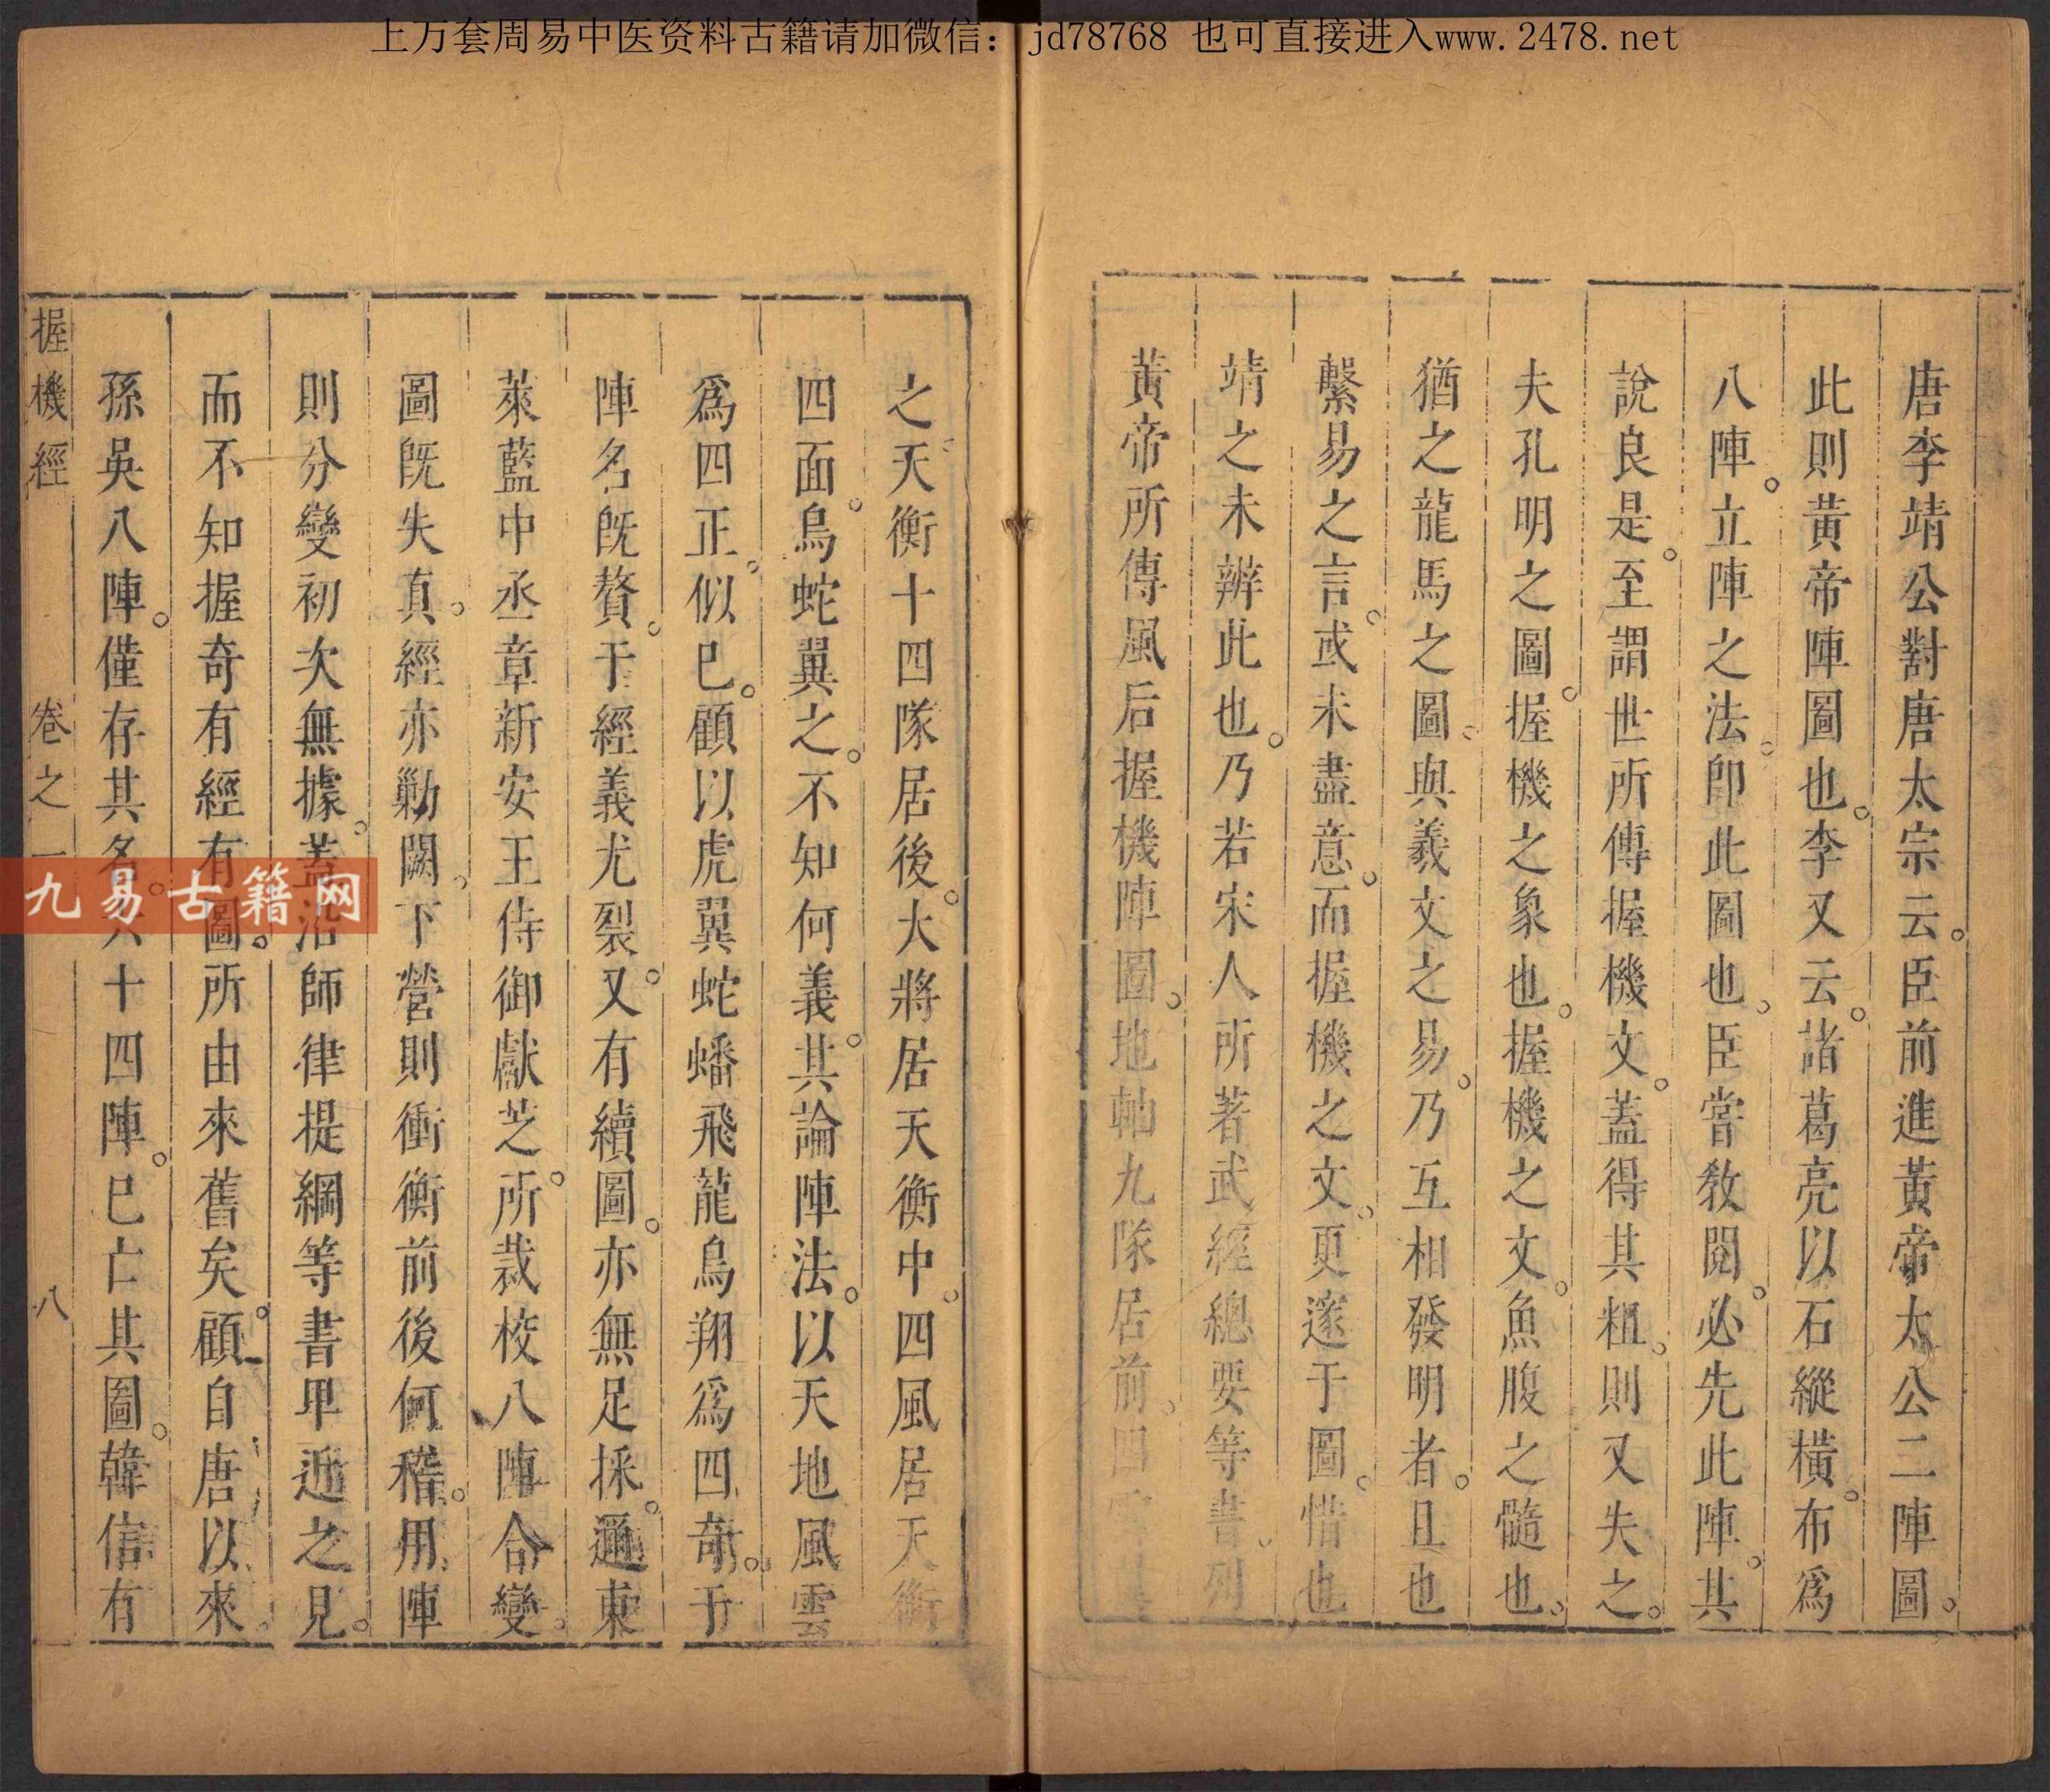 上万套周易中医资料古籍请加微信：jd78768 也可直接进入www.2478.net
唐李靖公對唐太宗云。臣前進黃帝太公二陣圖。
此則黃帝陣圖也。李又云。諸葛亮以石縱橫。布爲
八陣。立陣之法。即此圖也。臣嘗教閱。必先此陣。其
說良是。至謂世所傳握機文。蓋得其粗。則又失之。
夫孔明之圖。握機之象也。握機之文。魚腹之髓也。
猶之龍馬之圖。與羲文之易。乃互相發明者。且也
繫易之言。或未盡意。而握機之文。更邃于圖。惜也
靖之未辨此也。乃若宋人所著武經總要等書。列
黃帝所傳風后握機陣圖。地軸九隊居前。
之天衡十四隊居後。大將居天衡中。四風居天衡
四面。鳥蛇翼之。不知何義。其論陣法。以天地風雲
爲四正。似已。顧以虎翼蛇蟠飛龍鳥翔爲四奇。于
陣名既贅。于經義尤裂。又有續圖。亦無足採。邇東
萊藍中丞章新安王侍御獻芝。所裁校八陣合變。
圖既失真。經亦勦闕。下營則衝衡前後何稽。用陣
則分變初次無據。蓋沿師律提綱等書卑近之見。
而不知握奇有經有圖。所由來舊矣。顧自唐以來。
孫吳八陣。僅存其名。六十四陣。已亡其圖。韓信有
握機經
卷之一
八
九易古籍网